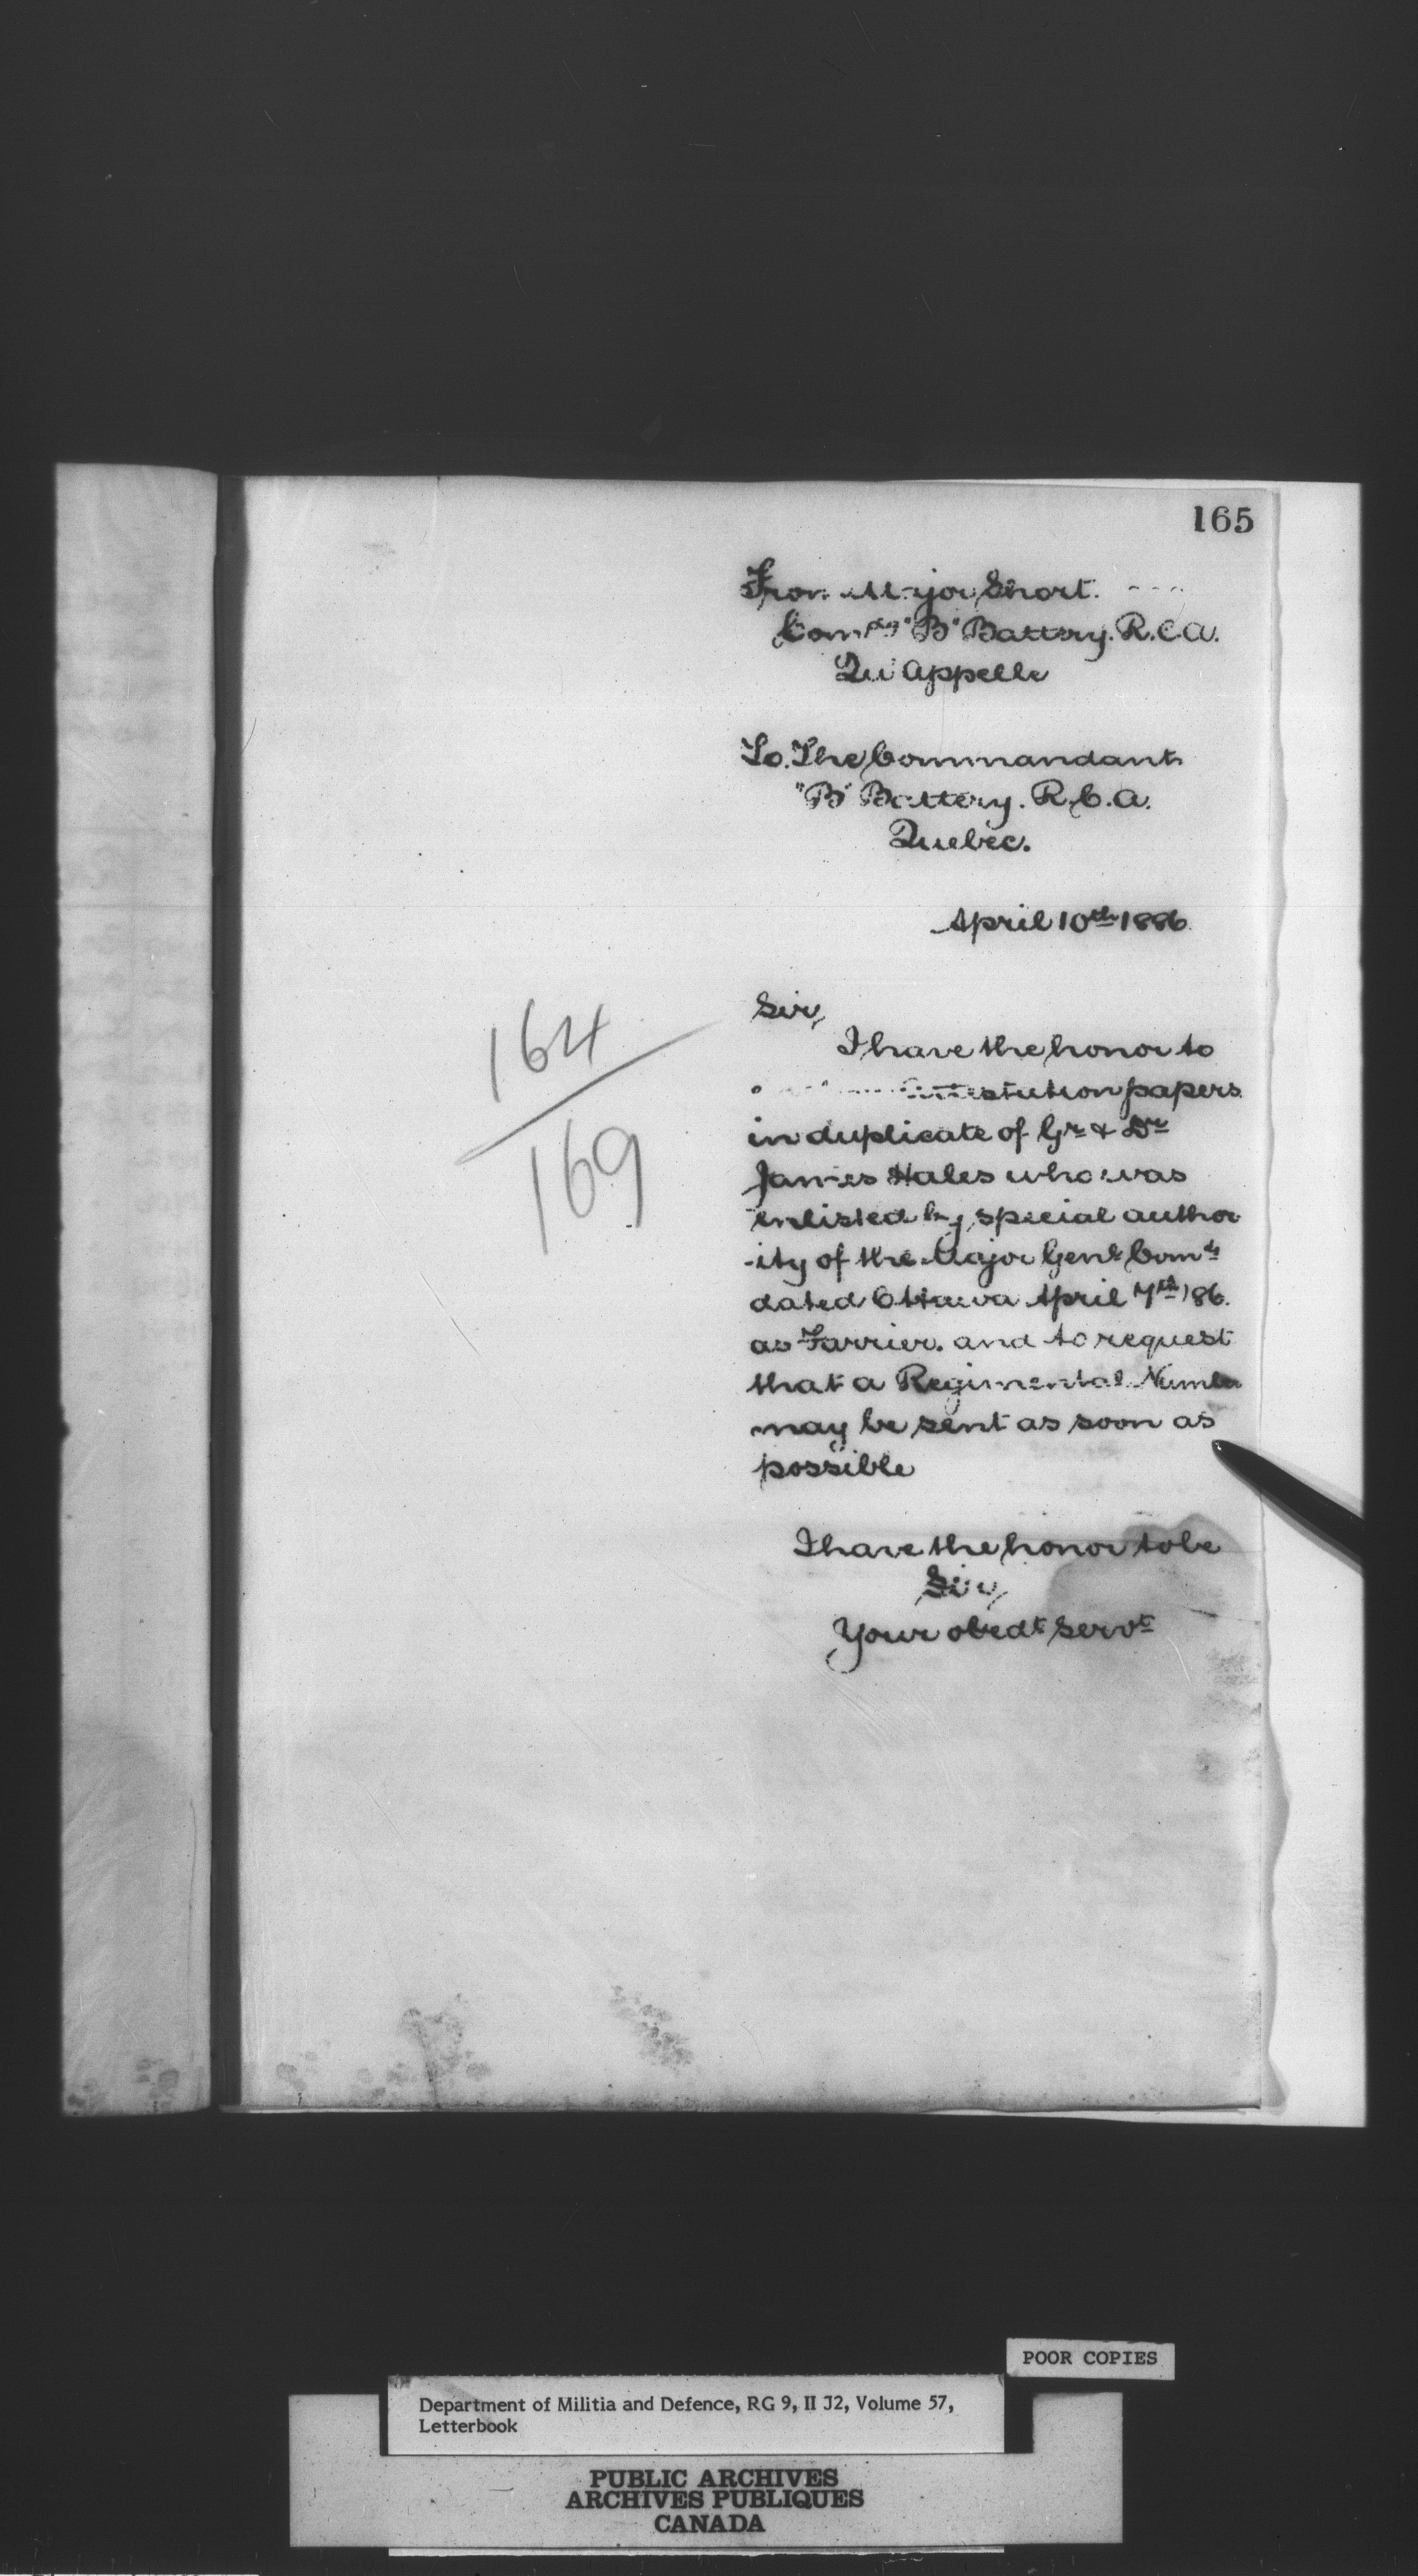 165
From Major Short.
Comdg "B" Battery. R.C.A.
Qu'Appelle
To. The Commandant
"B" Battery. R.C.A.
Quebec.
April 10th 1886.
Sir,
I have the honor to
papers
in duplicate of Gr & Dr
James Hales who was
enlisted by special author
-ity of the Major Genl Comdg
dated Ottawa April 7th /86.
as Farrier. and to request
that a Regimental Number
may be sent as soon as
possible
I have the honor to be
Sir,
Your obedt Servt
164
169
POOR COPIES
Department of Militia and Defence, RG 9, II J2, Volume 57,
Letterbook
PUBLIC ARCHIVES
ARCHIVES PUBLIQUES
CANADA